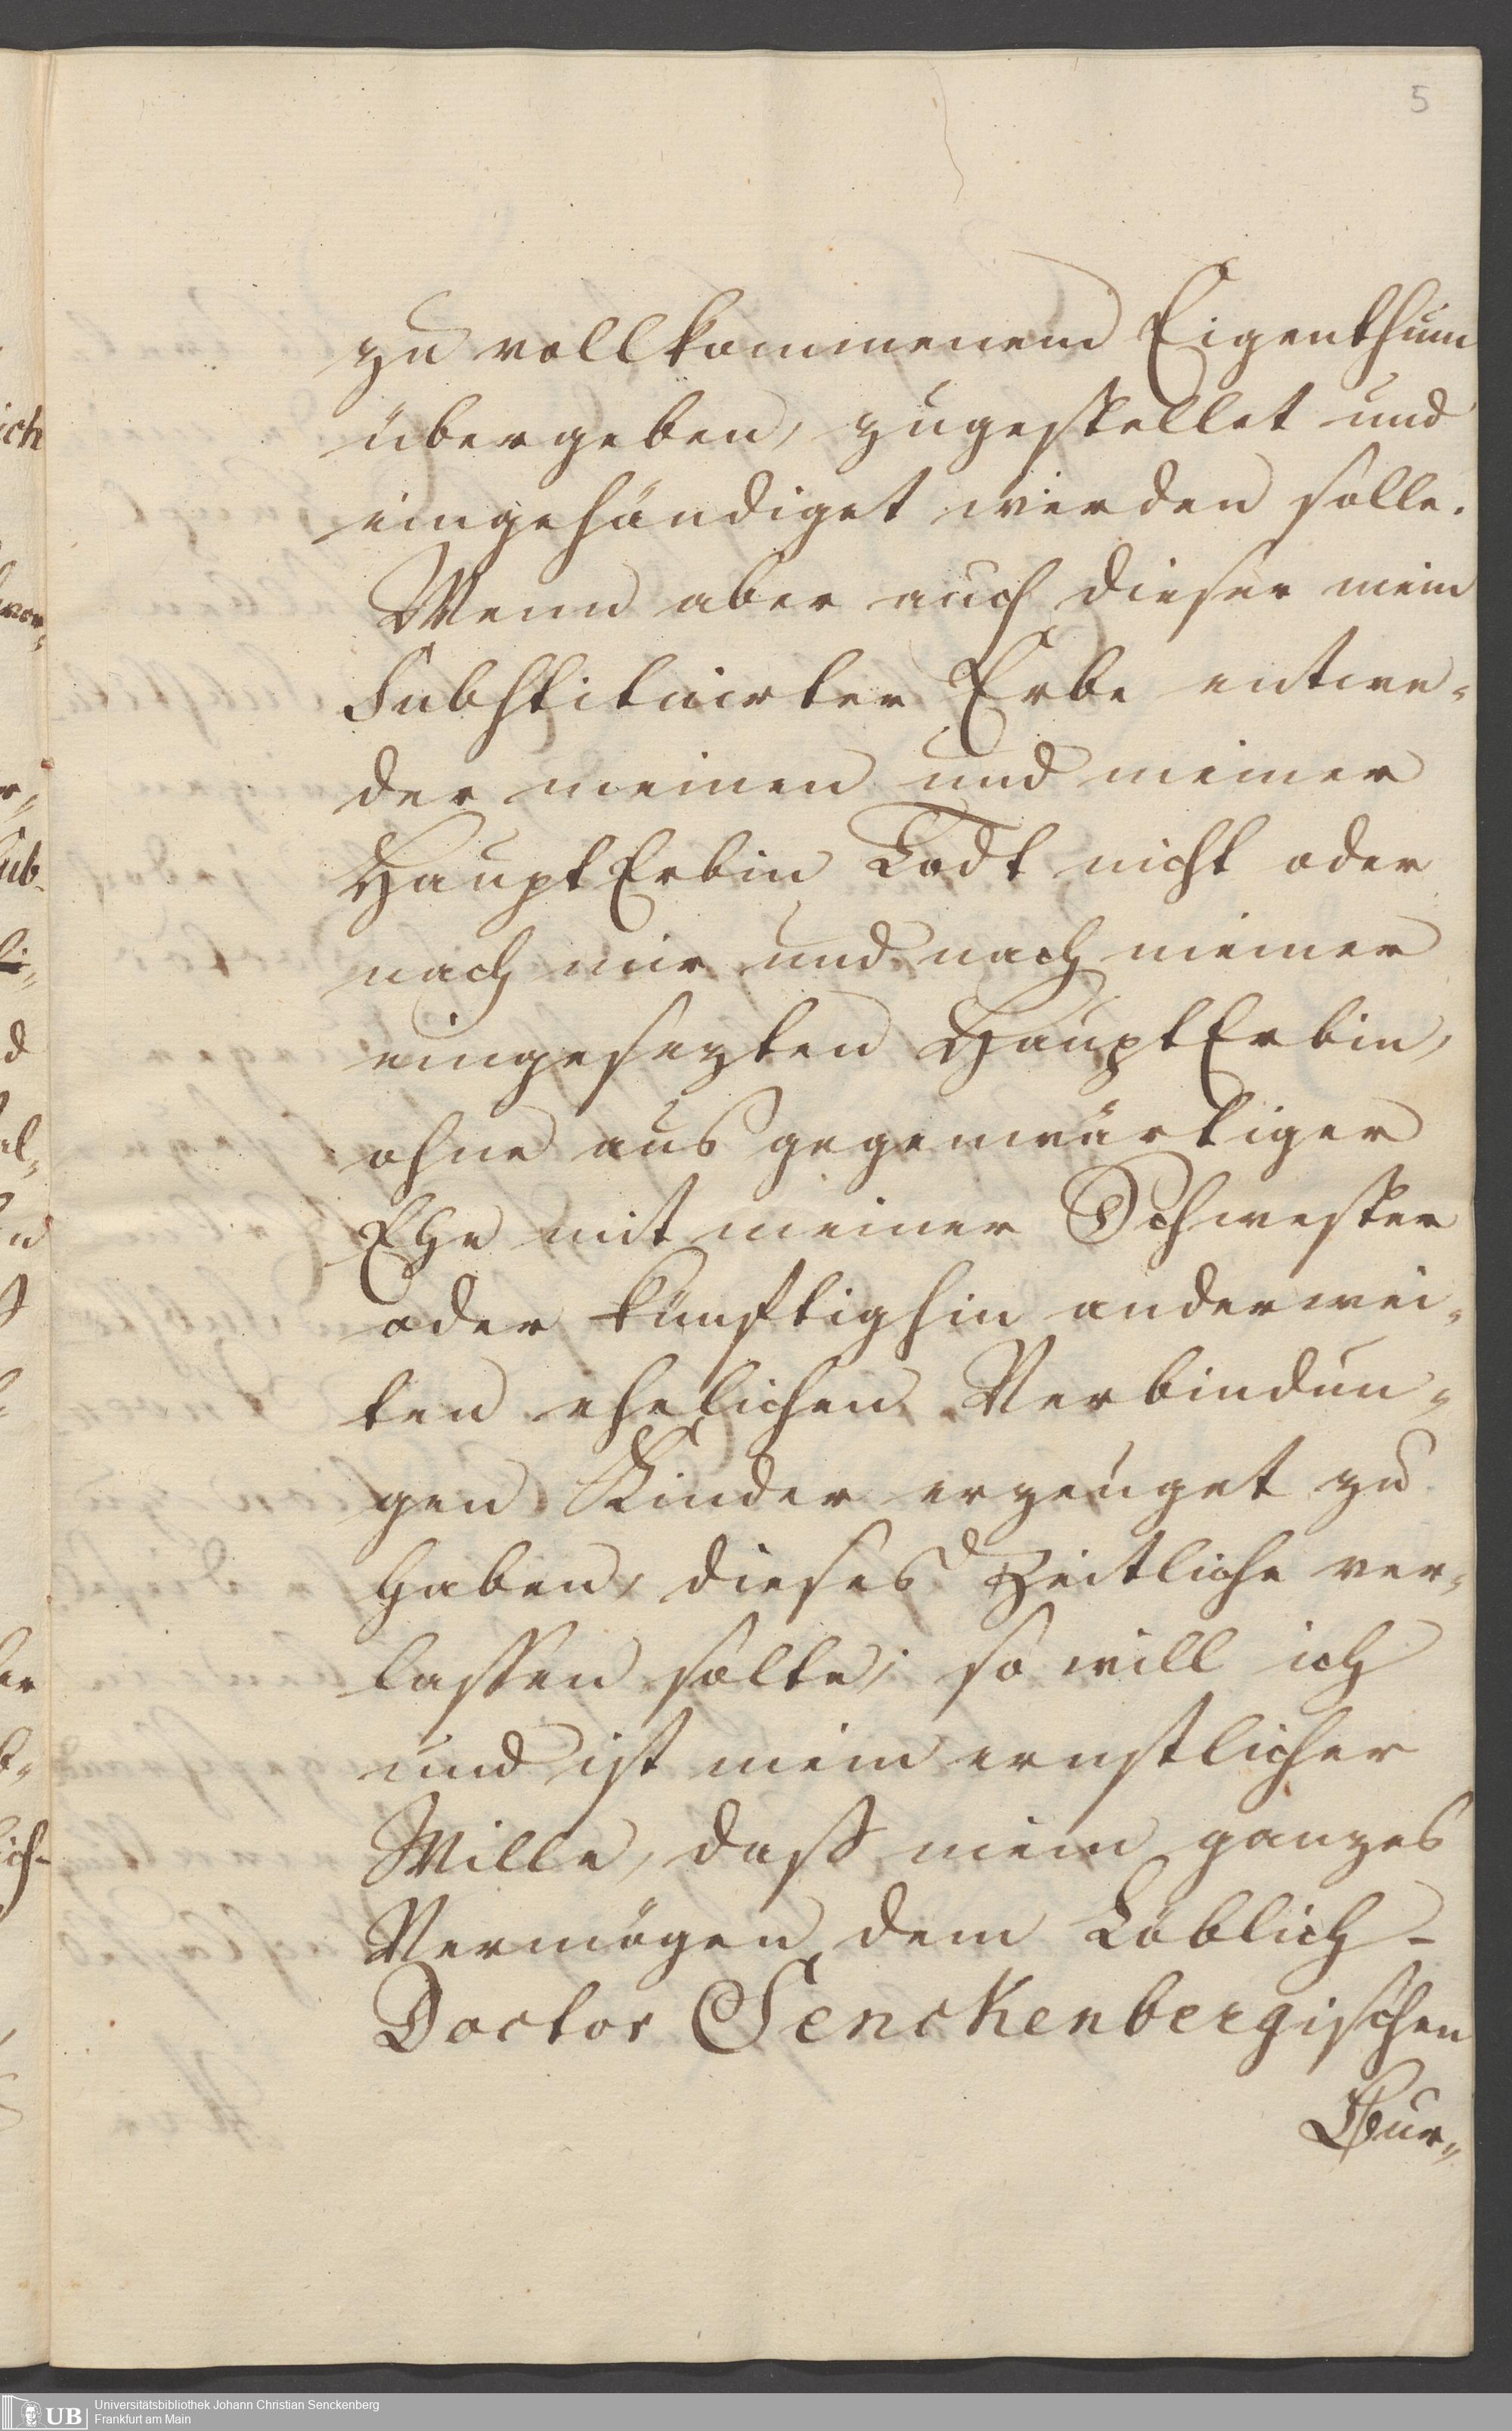 5
zu vollkommenem Eigenthum
übergeben, zugestellet und
eingehändiget werden solle.
Wenn aber auch dieser mein
Substituirter Erbe entwe-
der meinen und meiner
HauptErbin Todt nicht oder
nach mir und nach meiner
eingesezten HauptErbin,
ohne aus gegenwärtiger
Ehe mit meiner Schwester
oder künftighin anderwei-
ten ehelichen Verbindun-
gen Kinder erzeuget zu
haben, dieses Zeitliche ver-
lassen solte; so will ich
und ist mein ernstlicher
Wille, daß mein ganzes
Vermögen dem Löblich-
Doctor Senckenbergischen
Bur-
UB
Universitätsbibliothek Johann Christian Senckenberg
Frankfurt am Main